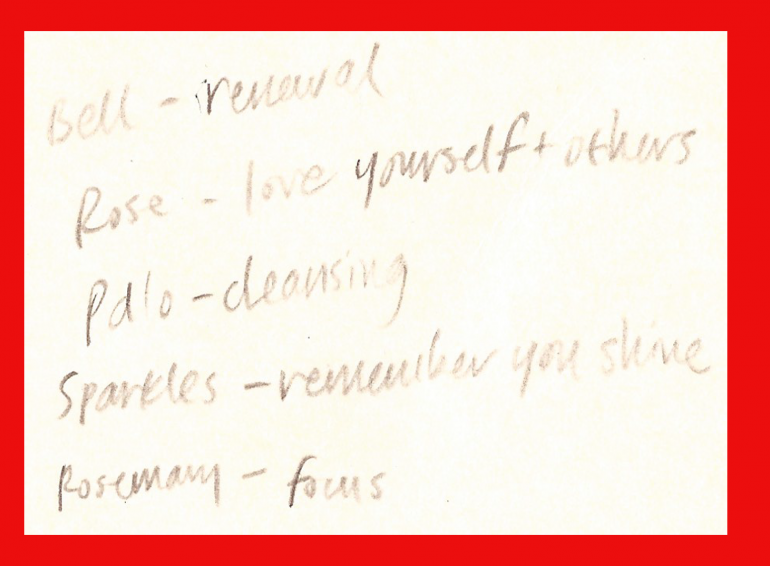 Bell - renewal
Rose - love yourself + others
- cleansing
Sparkles - remember you shine
Rosemary - focus